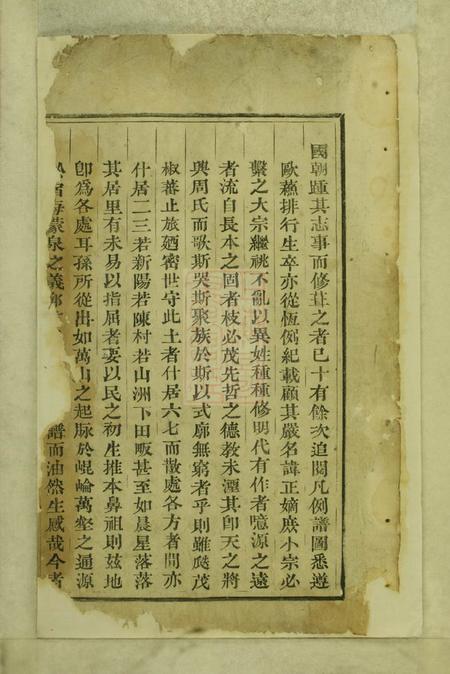 國朝踵其志事而修葺之者已十有餘次追閱凡例譜圖悉遵
歐蘇排行生卒亦從恆例紀載顧其嚴名諱正嫡庶小宗必
繫之大宗繼祧不亂以異姓種種修明代有作者噫源之遠
者流自長本之固者枝必茂先哲之德教未湮其卽天之將
興周氏而歌斯哭斯聚族於斯以式廓無窮者乎則雖瓞茂
椒蕃止旅廼密世守此土者什居六七而散處各方者間亦
什居二三若新陽若陳村若山洲下田畈甚至如晨星落落
其居里有未易以指屈者要以民之初生推本鼻祖則茲地
卽爲各處耳孫所從出如萬山之起脉於崐崘萬壑之通源
海蒙泉之義 譜而油然生感哉今者